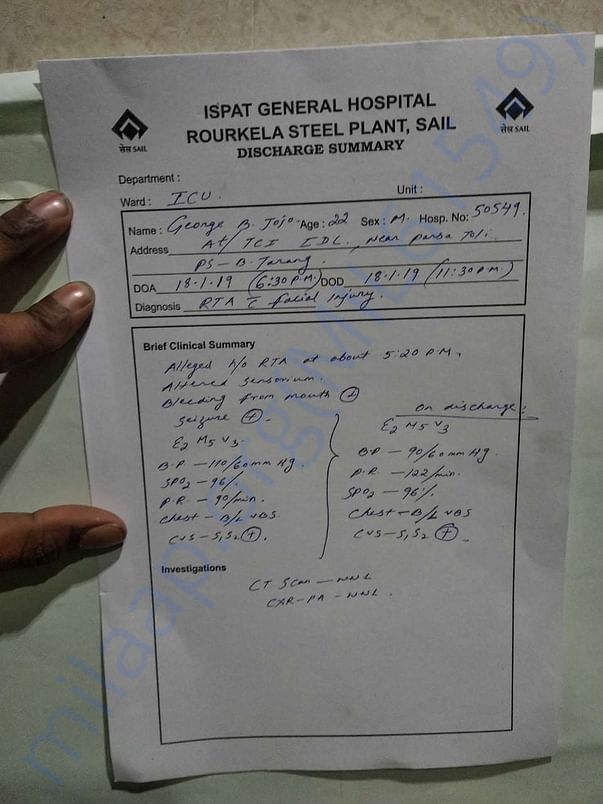 ISPAT GENERAL HOSPITAL
ROURKELA STEEL PLANT, SAIL
DISCHARGE SUMMARY
सेल SAIL
सेल SAIL
Department :
Ward : ICU. Unit :
Name : George B. Jojo Age : 22 Sex : M. Hosp. No: 50549.
Address At/ TCI IDL, Near Parba Toli.
PS - B. Tarang.
DOA 18.1.19 (6:30 P.M.) DOD 18.1.19 (11:30 P.M.)
Diagnosis RTA c̄ facial injury.
Brief Clinical Summary
Alleged h/o RTA at about 5:20 P.M.
Altered sensorium.
Bleeding from mouth (+)
Seizure (+).
E2 M5 V3.
B.P - 110/60 mm Hg.
SPO2 - 96%.
P.R. - 90/min.
Chest - B/L VBS
CVS - S1S2 (+).
On discharge:
E2 M5 V3
B.P - 90/60 mm Hg.
P.R. - 122/min.
SPO2 - 96%
Chest - B/L VBS
CVS - S1S2 (+).
Investigations
CT Scan - NNL
CXR-PA - NNL.
milaap.org